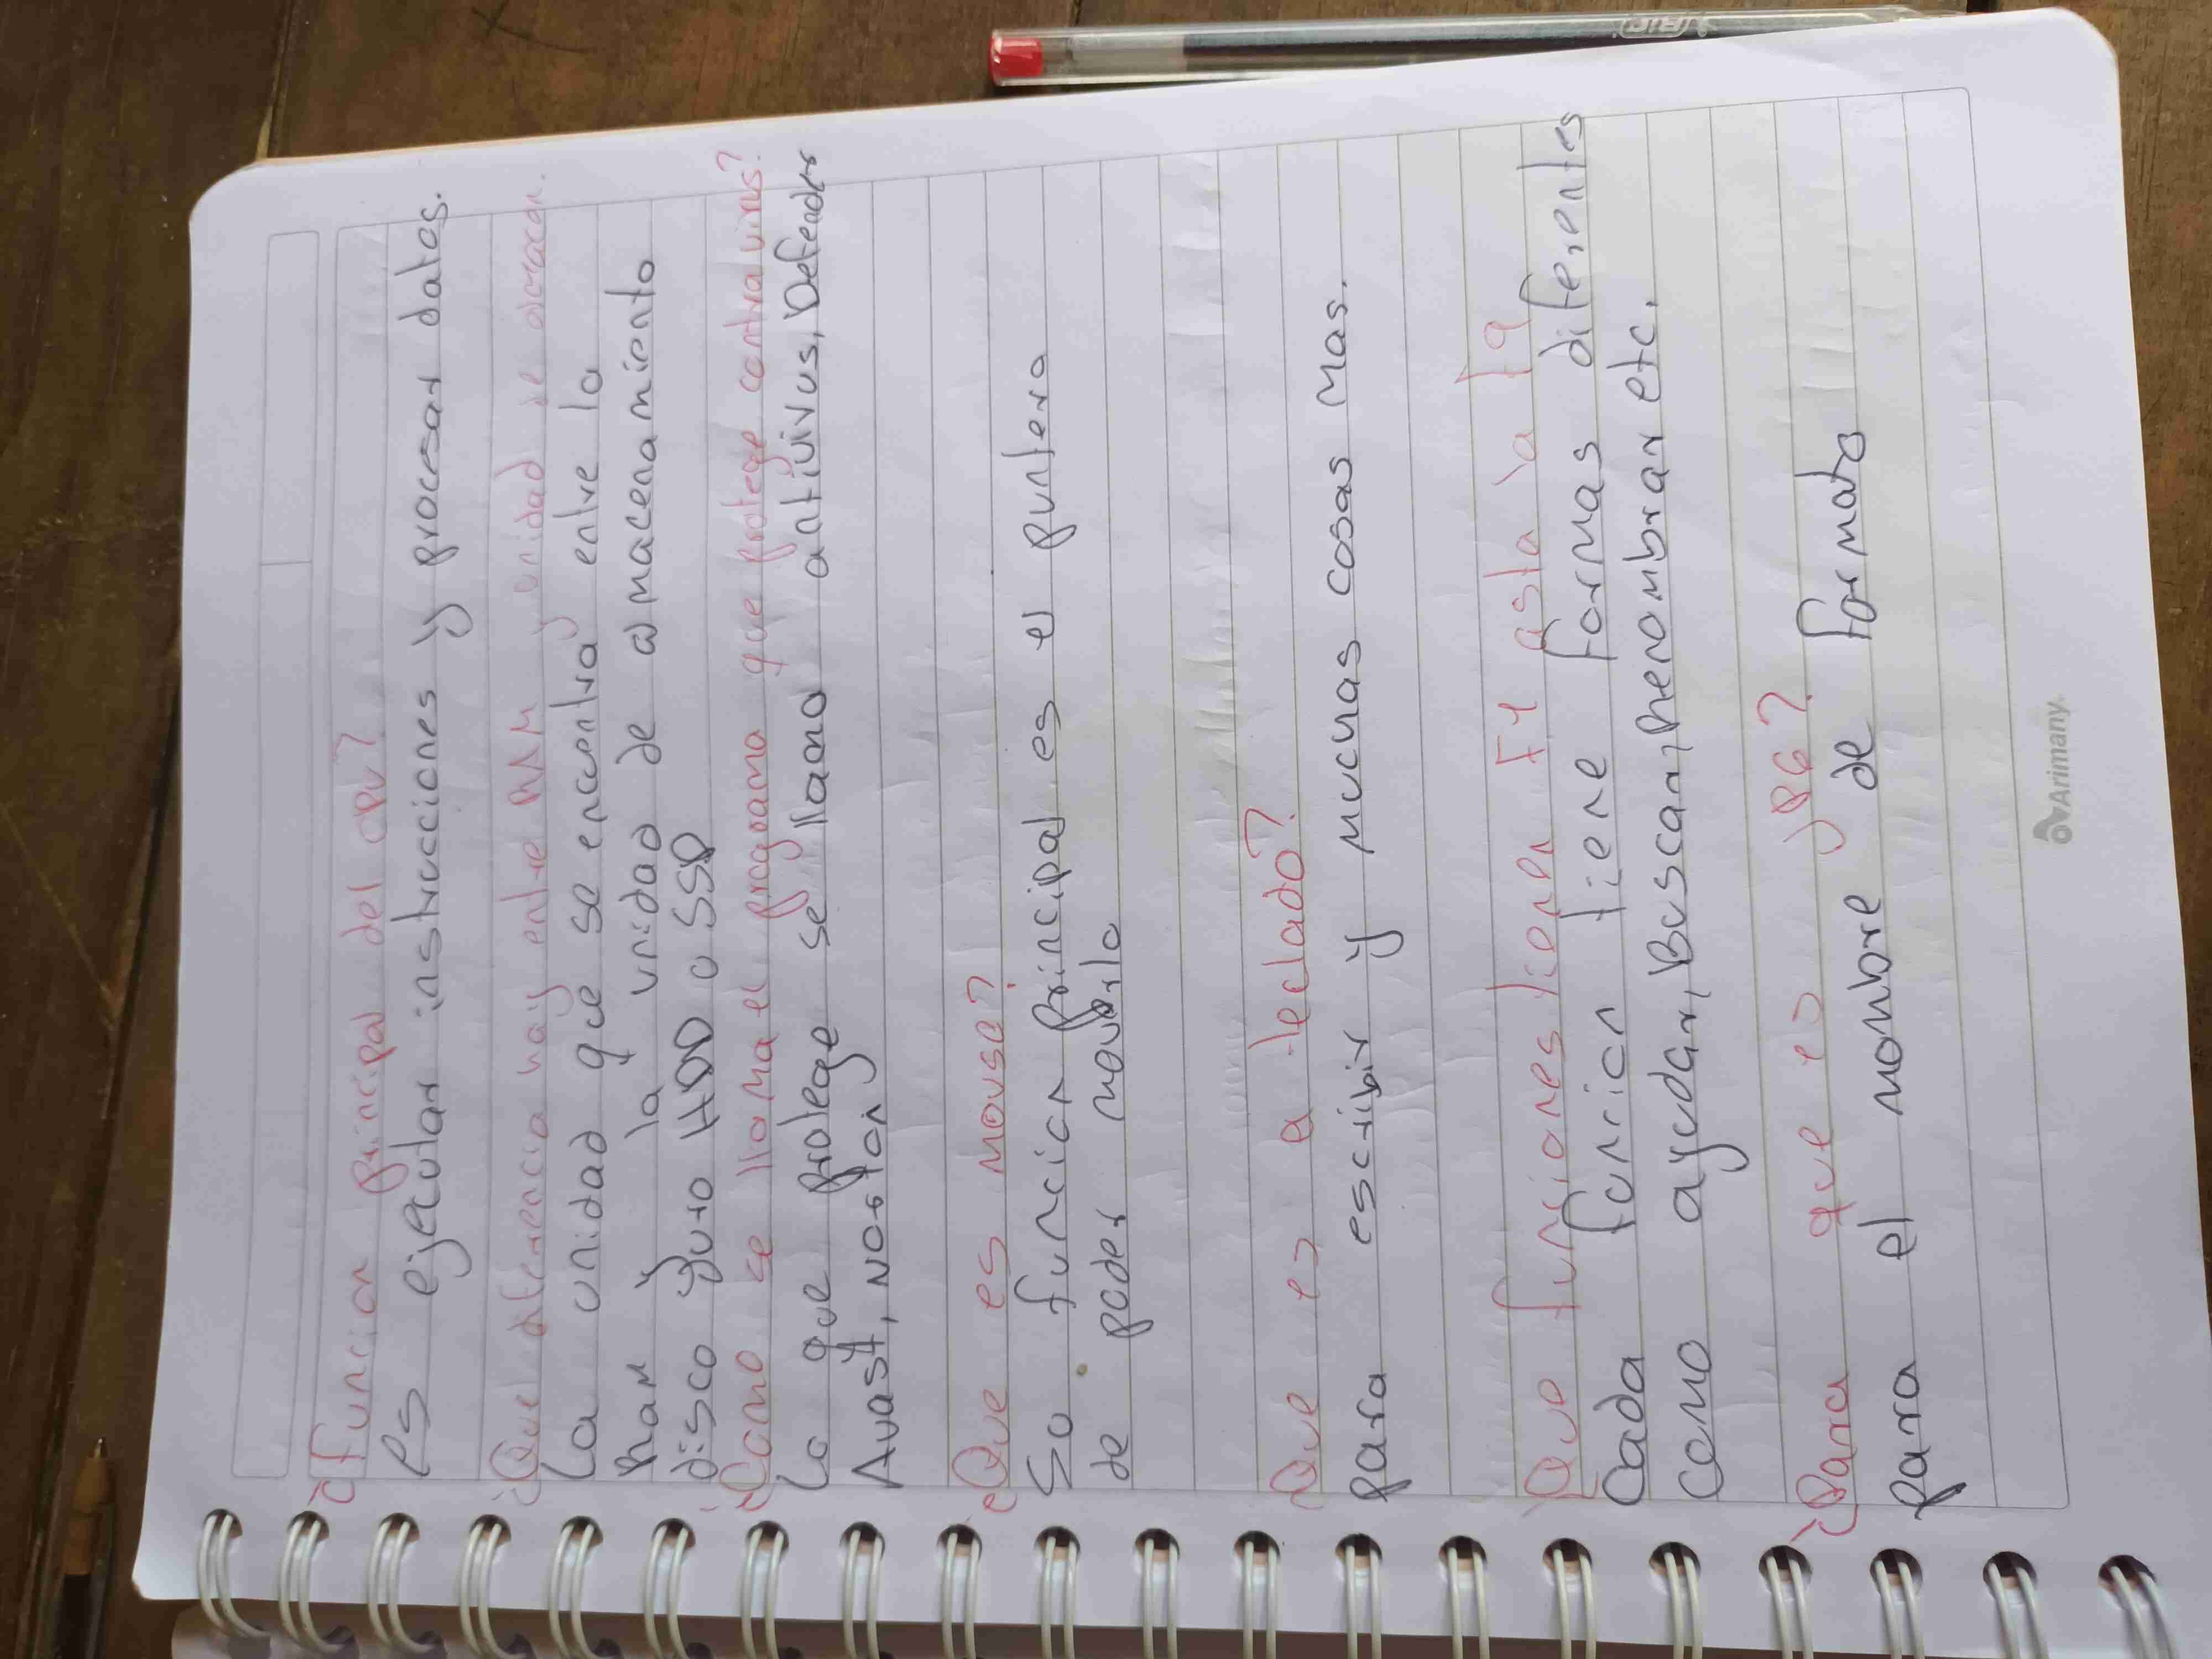 ¿Funcion principal del CPU?
es ejecutar instrucciones y procesar datos.
¿Que diferencia hay entre RAM y unidad de
La unidad que se encuentra entre la
Ram y la unidad de almacenamiento
disco Duro HDD o SSD
¿Como se llama el programa que protege contra virus?
Lo que protege se llama antivirus, Defender
Avast, Norton
¿Que es mouse?
Su funcion principal es el puntero
de poder moverlo
Que es a teclado?
para escribir y muchas cosas mas.
Que funciones tienen F1 asta la F9
Cada funcion tiene formas diferentes
como ayudar, Buscar, Renombrar etc.
¿Para que es JPG?
para el nombre de formato
Arimany